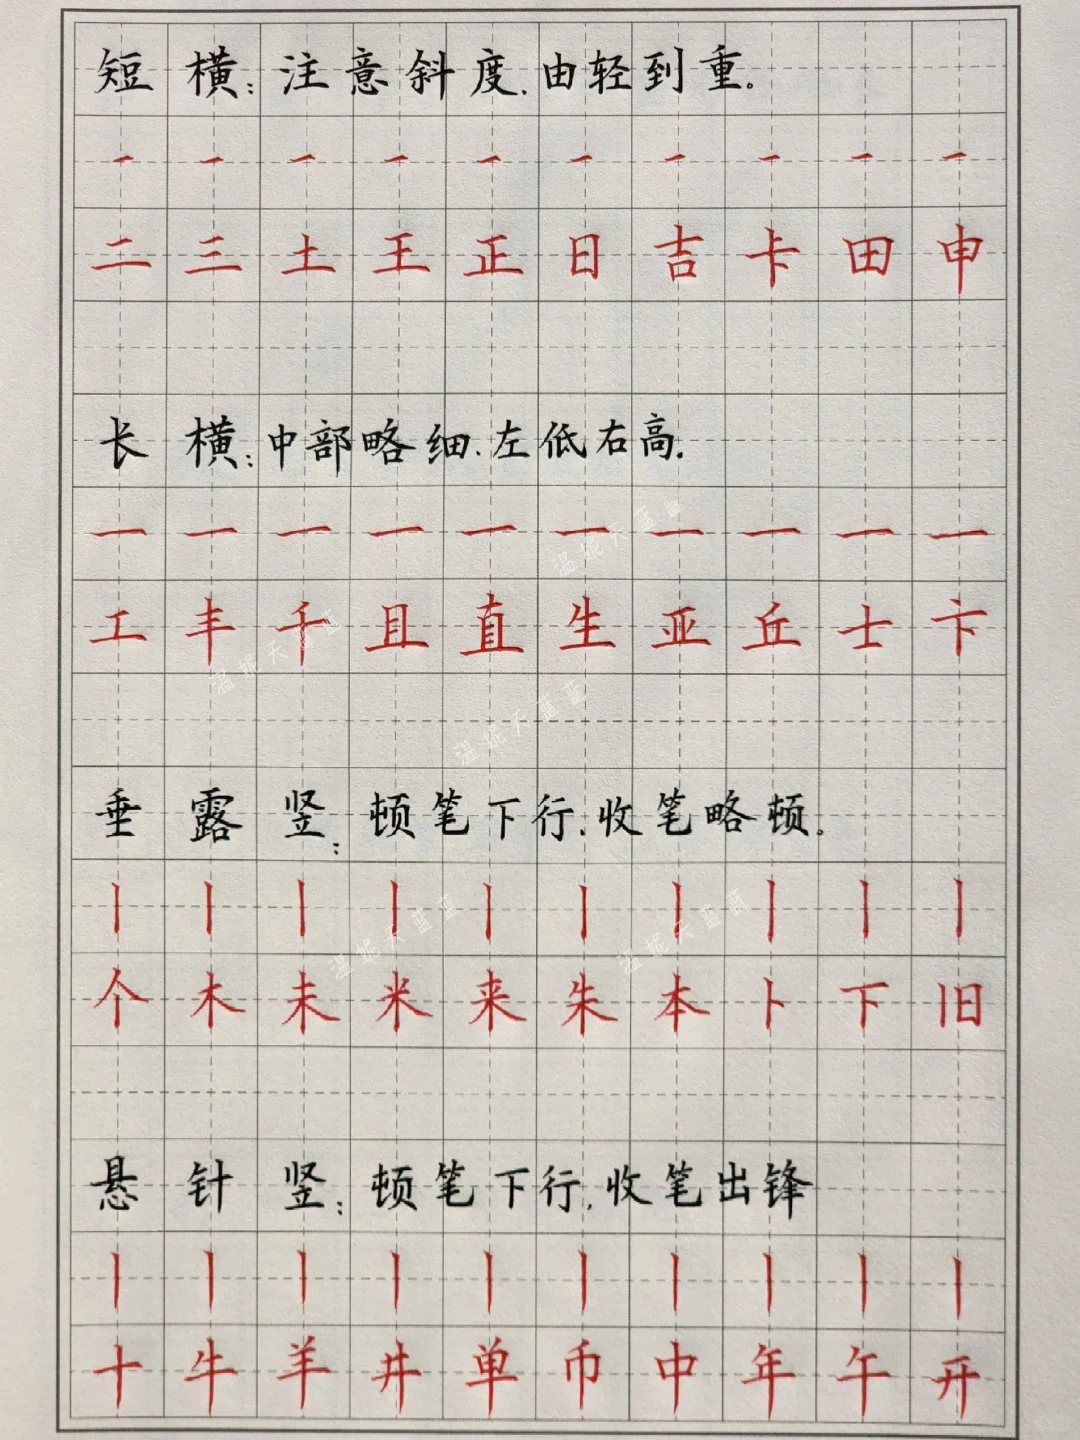 短横:注意斜度.由轻到重。
一一一一一一一一一一
二三土王正日吉卡田申
长横:中部略细.左低右高.
一一一一一一一一一一
工丰千且直生亚丘士卞
垂露竖:顿笔下行.收笔略顿。
丨丨丨丨丨丨丨丨丨丨
个木未米来朱本卜下旧
悬针竖:顿笔下行.收笔出锋
丨丨丨丨丨丨丨丨丨丨
十牛羊井单币中年午开
温妮天蓝蓝
温妮天蓝蓝
温妮天蓝蓝
温妮天蓝蓝
温妮天蓝蓝